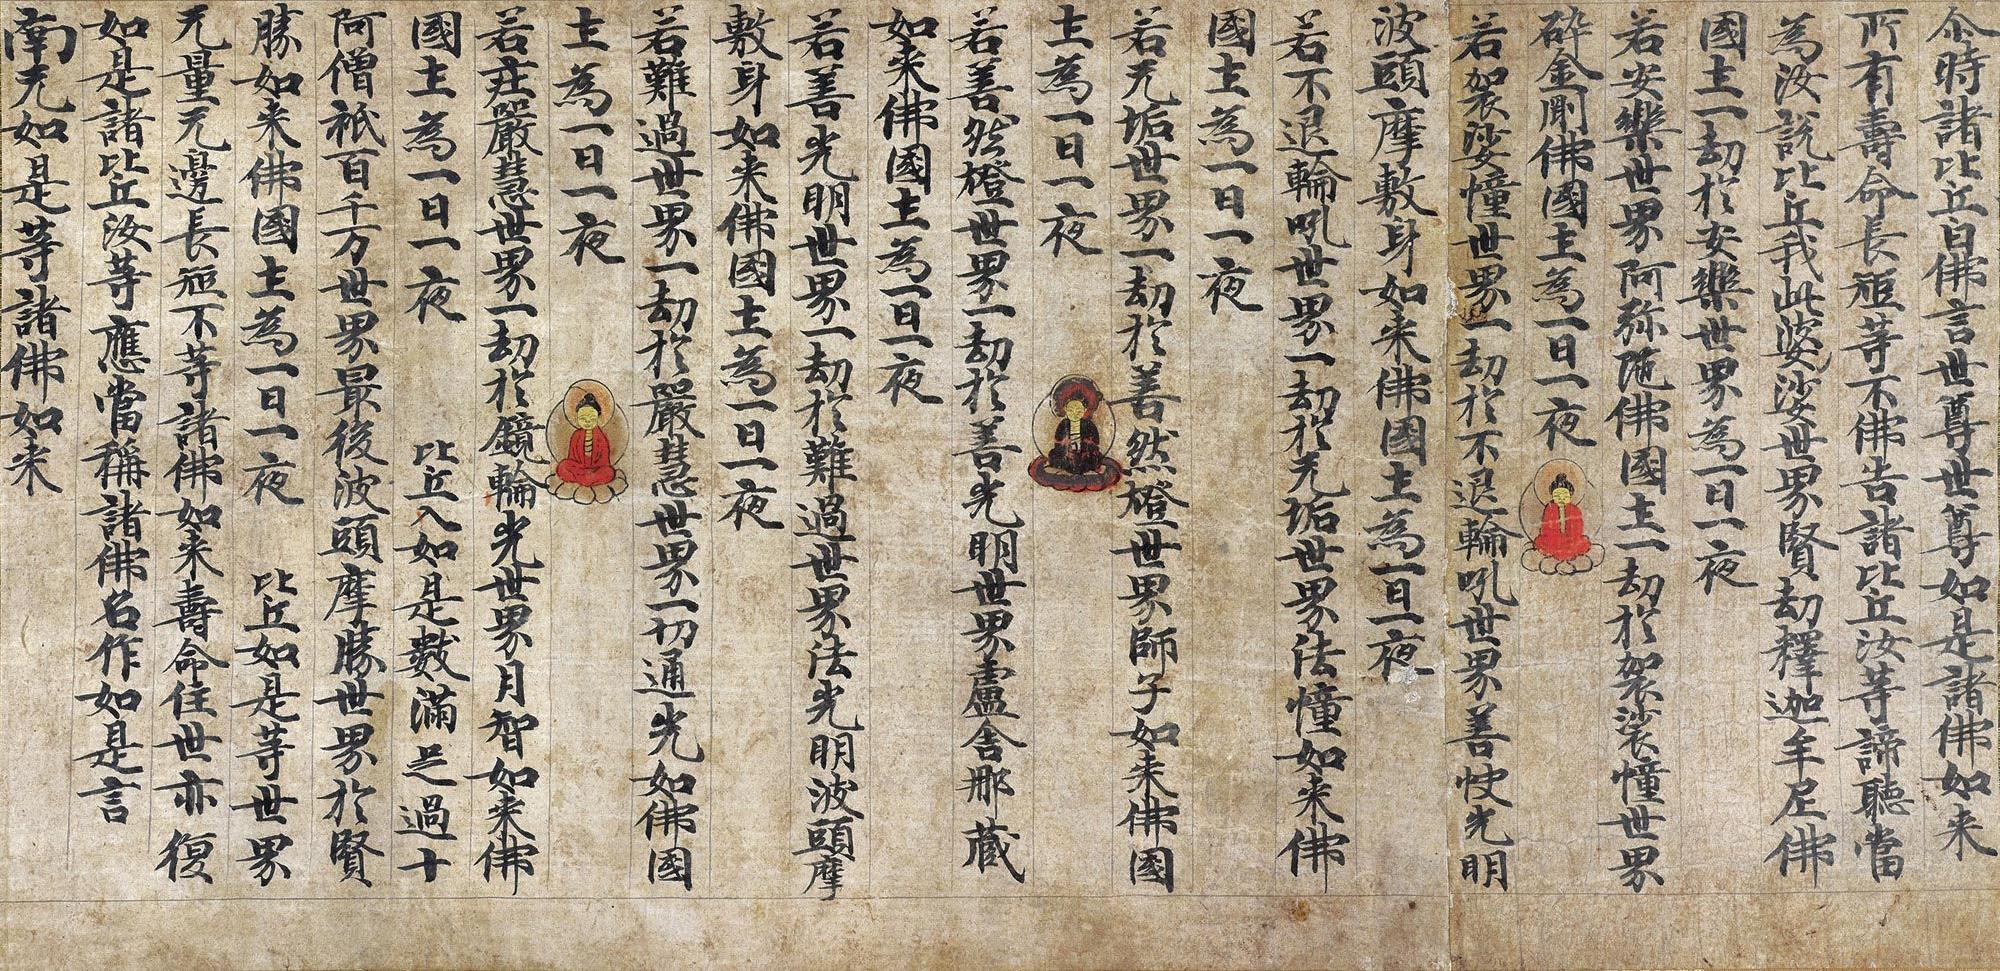 尒時諸比丘白佛言世尊世尊如是諸佛如来
所有壽命長短等不佛告諸比丘汝等諦聽當
為汝說比丘我此娑婆世界賢劫釋迦牟尼佛
國土一劫於安樂世界為一日一夜
若安樂世界阿弥陁佛國土一劫於袈裟幢世界
碎金剛佛國土為一日一夜
若袈裟幢世界一劫於不退輪吼世界善快光明
波頭摩敷身如来佛國土為一日一夜
若不退輪吼世界一劫於无垢世界法幢如来佛
國土為一日一夜
若无垢世界一劫於善然橙世界師子如来佛國
土為一日一夜
若善然橙世界一劫於善光明世界盧舍那蔵
如来佛國土為一日一夜
若善光明世界一劫於難過世界法光明波頭摩
敷身如来佛國土為一日一夜
若難過世界一劫於嚴慧世界一切通光如佛國
土為一日一夜
若莊嚴慧世界一劫於鏡輪光世界月智如来佛
國土為一日一夜 比丘入如是數滿足過十
阿僧祇百千万世界最後波頭摩勝世界於賢
勝如来佛國土為一日一夜 比丘如是等世界
无量无邊長短不等諸佛如来壽命住世亦復
如是諸比丘汝等應當稱諸佛名作如是言
南无如是等諸佛如来